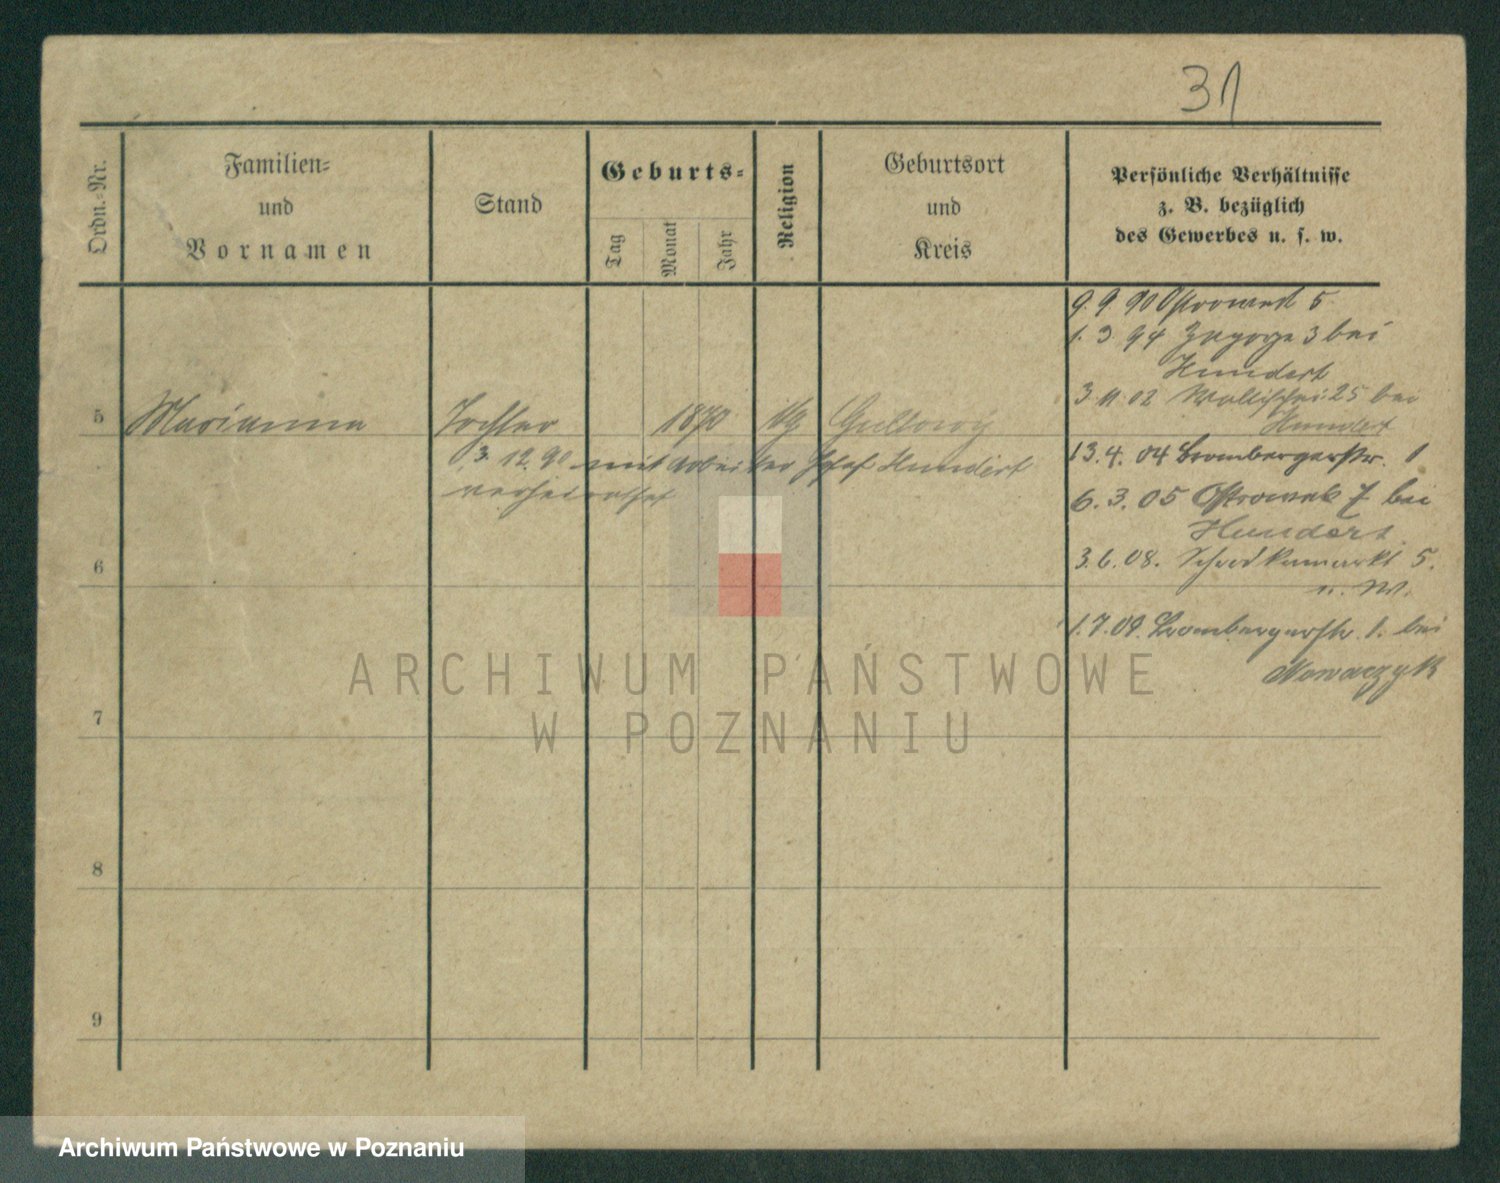 31
Ordn.-Nr.
Familien-
und
Vornamen
Stand
Geburts-
Tag
Monat
Jahr
Religion
Geburtsort
und
Kreis
Persönliche Verhältnisse
z. B. bezüglich
des Gewerbes u. s. w.
9. 9 90 Ostrowek 5
1. 3 94 Zagorze 3 bei
Hundert
3. 11. 02 Wallischei 25 bei
Hundert
5 Marianna Tochter 1870 Gultowy
13. 4. 04 Brombergerstr. 1
3. 12. 90 mit Arbeiter Josef Hundert
verheirathet
6. 3. 05 Ostrowek 7 bei
Hundert
6
3. 6. 08. Schrodkamarkt 5.
n. W.
1. 7. 09. Brombergerstr. 1. bei
Nowaczyk
ARCHIWUM PAŃSTWOWE
W POZNANIU
7
8
9
Archiwum Państwowe w Poznaniu